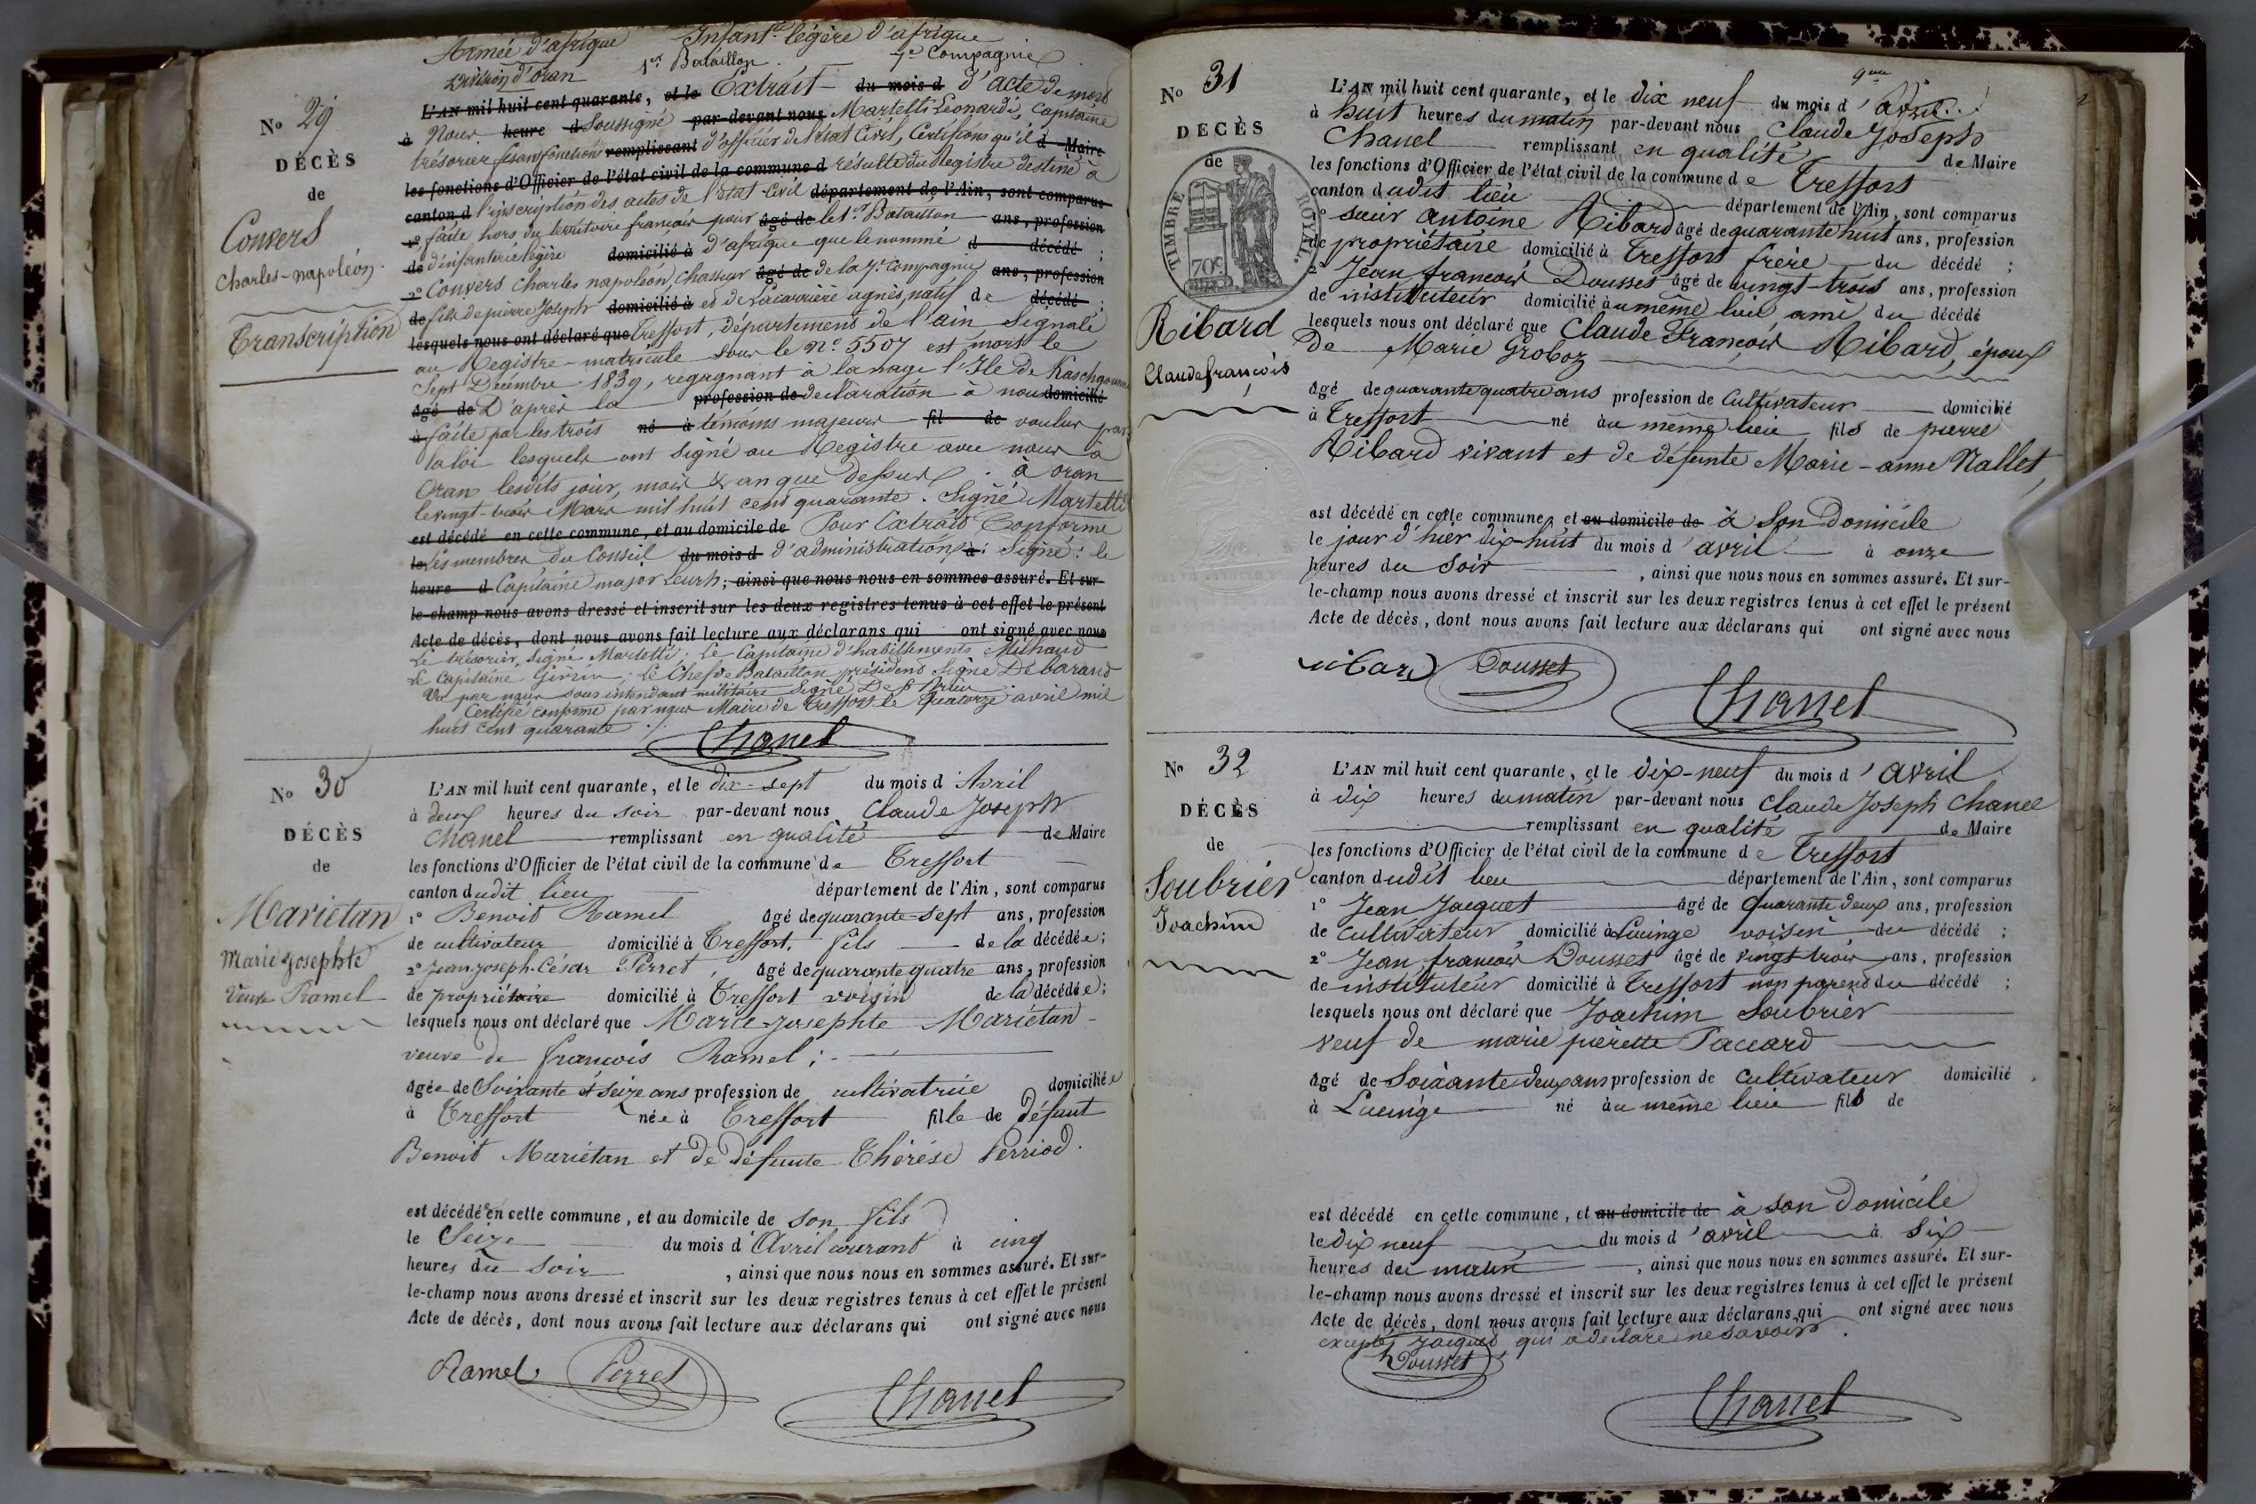 Armée d'afrique Infant.rie légère d'afrique
Division d'Oran 1er Bataillon. 7e Compagnie
No 29
DÉCÈS
de
Convers
Charles-napoléon.
Transcription
L'AN mil huit cent quarante, et le Extrait du mois d d'acte de mort
à Nous heure d Soussigné par-devant nous Martelli Léonardi, Capitaine
trésorier faisant fonctions remplissant d'officier de l'état Civil, Certifions qu'il d Maire
les fonctions d'Officier de l'état civil de la commune d résulte du Registre destiné à
canton d l'inscription des actes de l'état Civil département de l'Ain, sont comparus
1o faite hors du territoire français pour âgé de le 1er Bataillon ans, profession
de d'infanterie légère domicilié à d'afrique que le nommé d décédé ;
2o Convers Charles napoléon, Chasseur âgé de de la 7e Compagnie ans, profession
de fils de pierre Joseph domicilié à et de Lacarrière agnès, natif de décédé ;
lesquels nous ont déclaré que Treffort, département de l'ain Signalé
au Registre-matricule sous le No 5507 est mort le
Sept Décembre 1839, regagnant à la nage l'Ile de
âgé de D'après la profession de déclaration à nous domicilié
à faite par les trois né à témoins majeurs fil de voulus par
la loi lesquels ont signé au Registre avec nous à
Oran lesdits jour, mois & an que dessus. à Oran
le vingt trois Mars mil huit cent quarante. Signé Martelli
est décédé en cette commune, et au domicile de Pour Extrait Conforme
le Les membres du Conseil du mois d d'administration à : Signé : le
heure d Capitaine major ; ainsi que nous nous en sommes assuré. Et sur-
le-champ nous avons dressé et inscrit sur les deux registres tenus à cet effet le présent
Acte de décès, dont nous avons fait lecture aux déclarans qui ont signé avec nous
Le trésorier, signé Martelli, Le Capitaine d'habillements Michaud
Le Capitaine Girin, le Chef de Bataillon président Signé Débarand
Vu par nous sous intendant militaire Signé De St
Certifié conforme par nous Maire de Treffort le quatorze avril mil
huit cent quarante.
Chanel
No 30
DÉCÈS
de
Mariétan
Marie Josephte
Veuve Ramel
L'AN mil huit cent quarante, et le dix-sept du mois d'Avril
à deux heures du soir par-devant nous Claude Joseph
Chanel remplissant en qualité de Maire
les fonctions d'Officier de l'état civil de la commune de Treffort
canton dudit lieu département de l'Ain, sont comparus
1o Benoit Ramel âgé de quarante-sept ans, profession
de cultivateur domicilié à Treffort, fils de la décédée ;
2o Jean-Joseph-César Perret, âgé de quarante quatre ans, profession
de propriétaire domicilié à Treffort voisin de la décédée ;
lesquels nous ont déclaré que Marie-Josephte Mariétan
veuve de françois Ramel ;
âgée de Soixante et Seize ans profession de cultivatrice domiciliée
à Treffort née à Treffort fille de défunt
Benoit Mariétan et de défunte Thérèse Perriod.
est décédée en cette commune, et au domicile de son fils
le Seize du mois d'Avril courant à cinq
heures du soir, ainsi que nous nous en sommes assuré. Et sur-
le-champ nous avons dressé et inscrit sur les deux registres tenus à cet effet le présent
Acte de décès, dont nous avons fait lecture aux déclarans qui ont signé avec nous
Ramel Perret
Chanel
No 31
DÉCÈS
de
TIMBRE ROYAL
70c
Ribard
Claude françois
L'AN mil huit cent quarante, et le dix neuf du mois d'avril
à huit heures du matin par-devant nous Claude Joseph
Chanel remplissant en qualité de Maire
les fonctions d'Officier de l'état civil de la commune de Treffort
canton dudit lieu département de l'Ain, sont comparus
1o sieur antoine Ribard âgé de quarante huit ans, profession
de propriétaire domicilié à Treffort frère du décédé ;
2o Jean françois Dousset âgé de vingt-trois ans, profession
de instituteur domicilié au même lieu ami du décédé
lesquels nous ont déclaré que Claude François Ribard, époux
De Marie Groboz
âgé de quarante quatre ans profession de Cultivateur domicilié
à Treffort né au même lieu fils de pierre
Ribard vivant et de défunte Marie-anne Nallet,
est décédé en cette commune, et au domicile de à Son Domicile
le jour d'hier dix-huit du mois d'avril à onze
heures du Soir, ainsi que nous nous en sommes assuré. Et sur-
le-champ nous avons dressé et inscrit sur les deux registres tenus à cet effet le présent
Acte de décès, dont nous avons fait lecture aux déclarans qui ont signé avec nous
Ribard Dousset
Chanel
No 32
DÉCÈS
de
Soubrier
Joachim
L'AN mil huit cent quarante, et le dix-neuf du mois d'avril
à dix heures du matin par-devant nous Claude Joseph Chanel
remplissant en qualité de Maire
les fonctions d'Officier de l'état civil de la commune de Treffort
canton dudit lieu département de l'Ain, sont comparus
1o Jean Jacquet âgé de quarante deux ans, profession
de Cultivateur domicilié à Lucinge voisin du décédé ;
2o Jean françois Dousset âgé de vingt trois ans, profession
de instituteur domicilié à Treffort non parent du décédé ;
lesquels nous ont déclaré que Joachim Soubrier
veuf de marie pierette Paccard
âgé de Soixante deux ans profession de Cultivateur domicilié
à Lucinge né au même lieu fils de
est décédé en cette commune, et au domicile de à son Domicile
le dix neuf du mois d'avril à six
heures du matin, ainsi que nous nous en sommes assuré. Et sur-
le-champ nous avons dressé et inscrit sur les deux registres tenus à cet effet le présent
Acte de décès, dont nous avons fait lecture aux déclarans qui ont signé avec nous
excepté Jacquet qui a déclaré ne savoir.
Dousset
Chanel